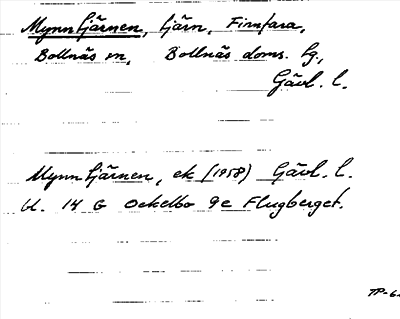 Mynntjärnen, tjärn, Finnfara,
Bollnäs sn, Bollnäs doms. hg.,
Gävl. l.
Mynntjärnen, ek (1958) Gävl. l.
bl. 14 G Ockelbo 9e Flugberget.
TP-6